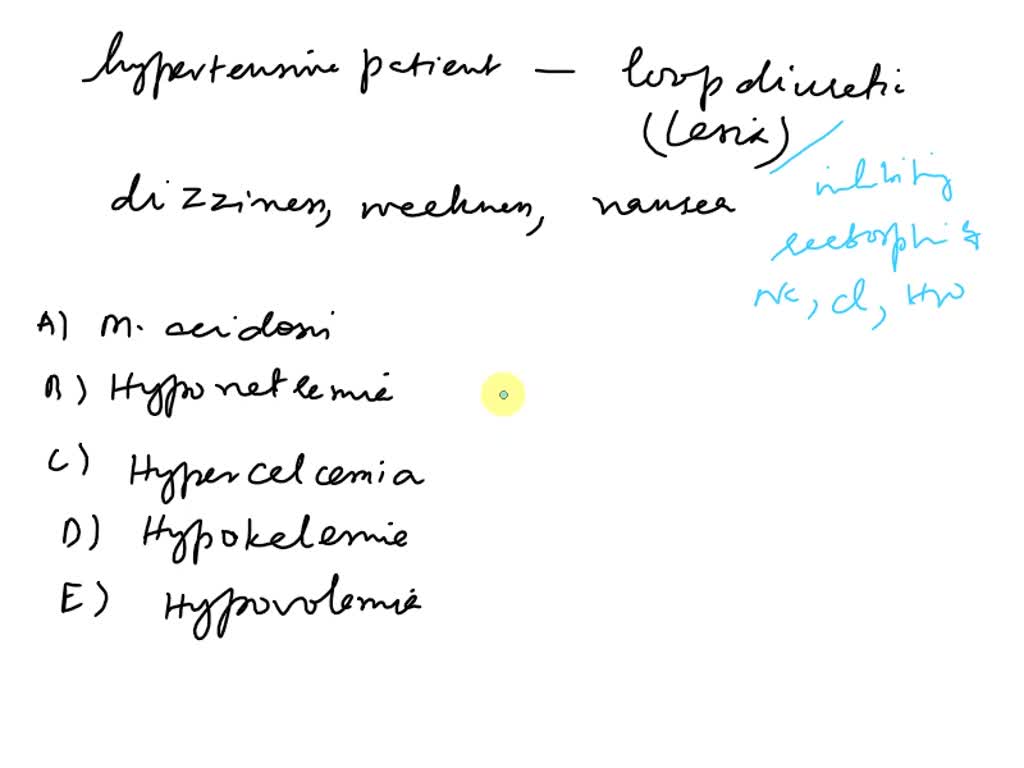 hypertensive patient — loop diuretic
(Lasix)
dizziness, weakness, nausea
inhibiting
reabsorption of
Na, Cl, H2O
A) M. acidosis
B) Hyponatremia
C) Hypercalcemia
D) Hypokalemia
E) Hypovolemia